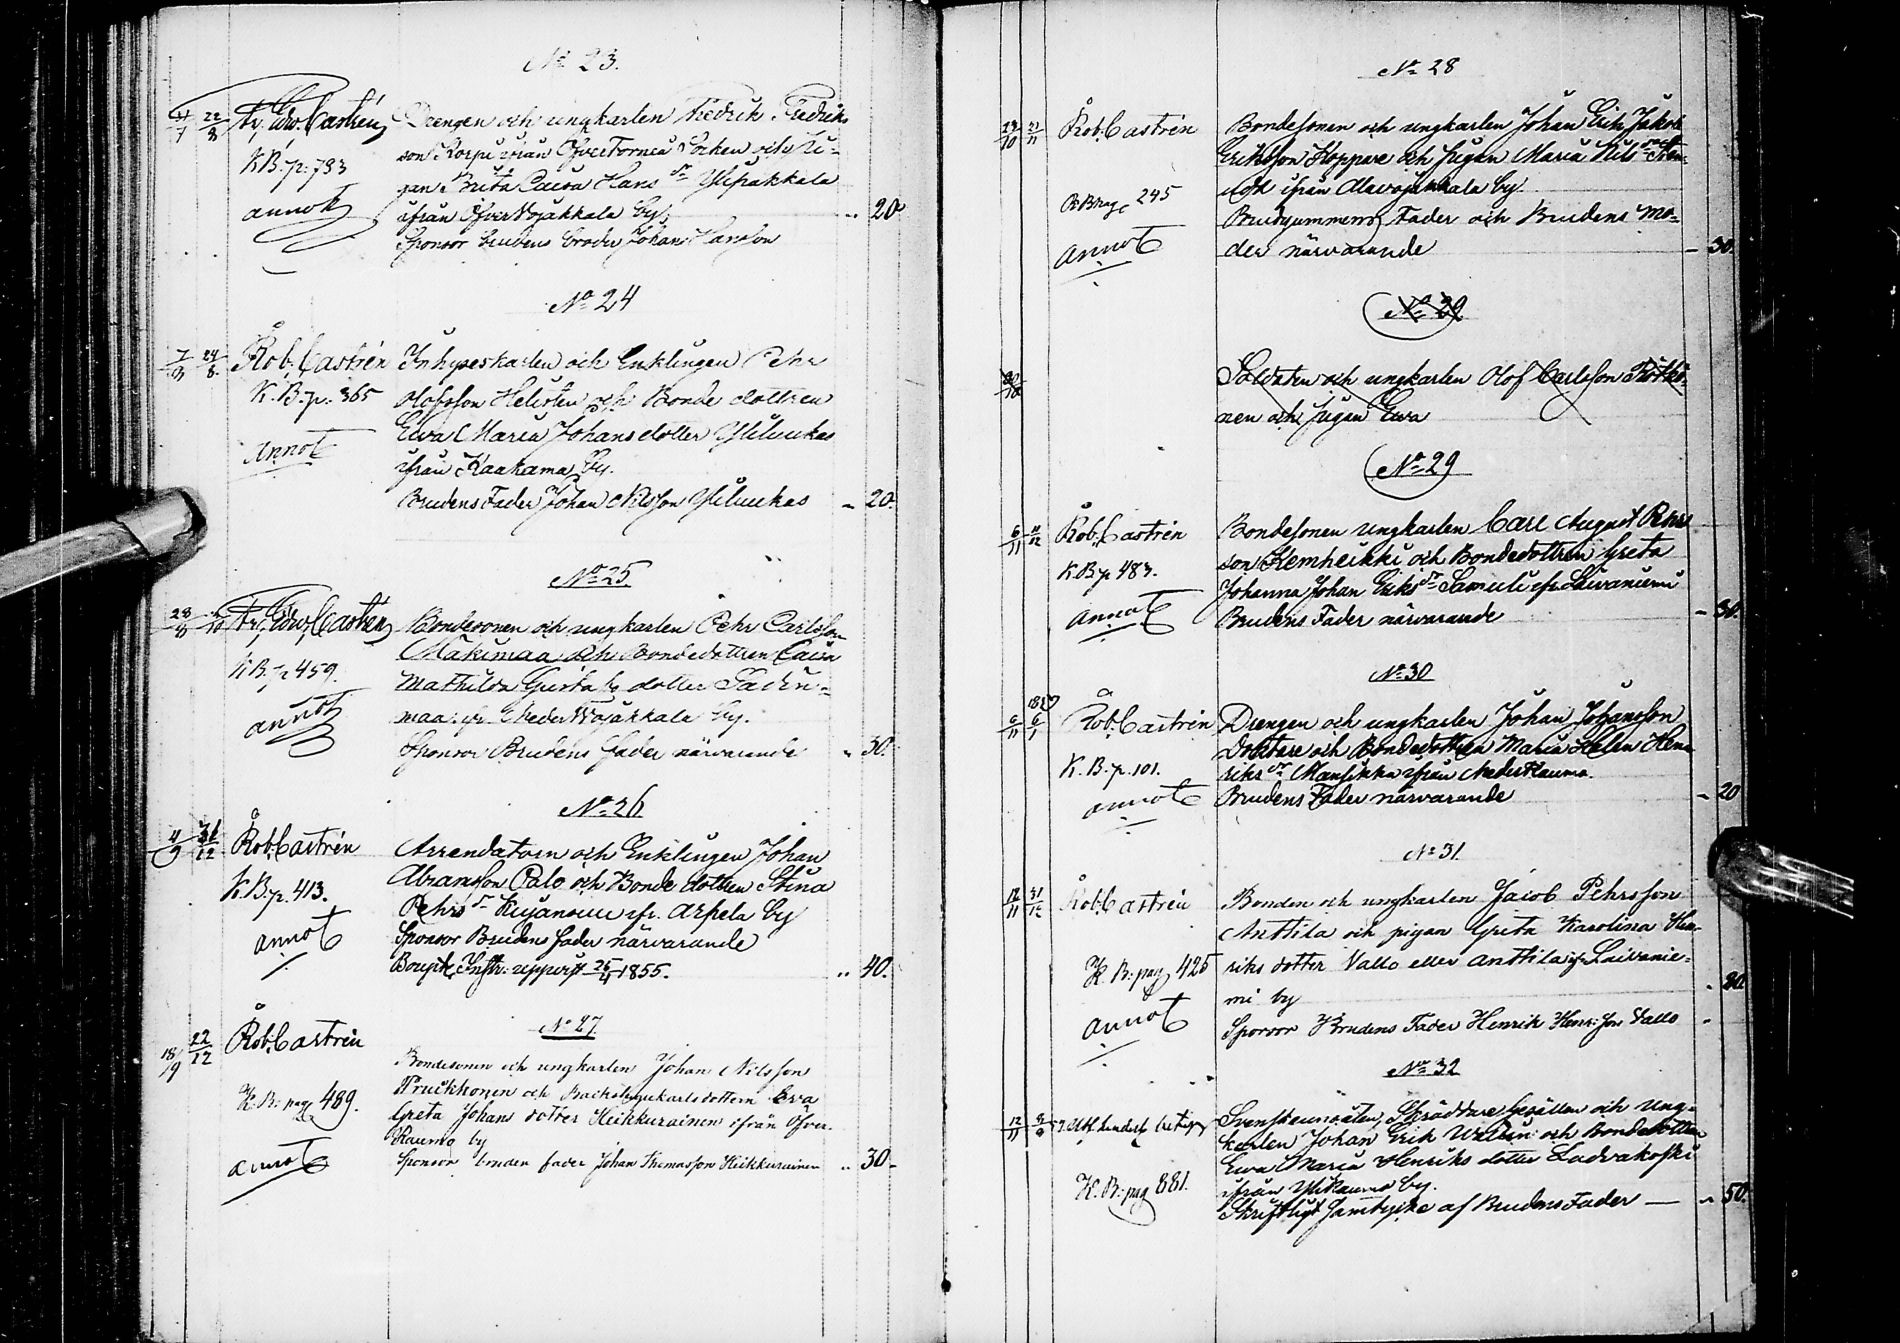 No 23.
22/8 Fr. Edv. Castrén Drengen och ungkarlen Fredrik Fredriks
son Korpi ifrån ÖfverTorneå Socken och Pi-
K.B. p: 793
gan Brita Caisa Hans dr Ylipakkala
annot
ifrån ÖfverWojakkala by. " 20
Sponsor brudens broder Johan Hansson
No 24
7/8 24/8 Rob. Castrén Inhyseskarlen och Enklingen Pehr
K.B. p. 365 Olofsson Helisten och Bonde dottren
Ewa Maria Johans dotter Yliluukas
annot
ifrån Kaakama by.
Brudens Fader Johan Nilsson Yliluukas " 20.
No 25.
28/8 /10 Fr. Edv. Castrén Bondesonen och ungkarlen Pehr Carlsson
Mäkimaa och Bondedottren Caisa
K.B. p 459.
Mathilda Gustafs dotter
annot
maa ifr NederWojakkala by.
Sponsor Brudens fader närvarande " 30.
No 26
4/9 31/12 Rob. Castrén Arrendatorn och Enklingen Johan
K.B. p. 413. Abramsson Palo och Bonde dottren Stina
Pehrs dr ifr. Arpela by
annot
Sponsor Brudens fader närvarande
Boupt. Instr. uppvist 25/4 1855. " 40.
No 27
18/9 22/12 Rob. Castrén
Bondesonen och ungkarlen Johan Nilsson
K.B: pag 489. Pruikkonen och Backstugukarlsdottern Eva
Greta Johans dotter Heikkurainen ifrån Öfver
Raumo by
annot Sponsor bruden fader Johan Thomasson Heikkurainen " 30-
No 28
29/10 21/11 Rob. Castrén Bondesonen och ungkarlen Johan Erik Jakob
Eriksson Koppare och Pigan Maria Nils dotter
K B pag 245 ifrån Alavojakkala by
Brudgummens Fader och Brudens Mo-
annot der närvarande - 30.
No 29
30/10 Soldaten och ungkarlen Olof Carlsson
nen och Pigan Ewa
No 29
6/11 11/12 Rob. Castrén Bondesonen ungkarlen Carl August Pehrs
son Kemheikki och Bondedottren Greta
K.B. p 483.
Johanna Johan Eriks dr Samuli ifr Laivaniemi
annot Brudens Fader närvarande - 30.
No 30
6/11 6/1 Rob. Castrén Drengen och ungkarlen Johan Johansson
och Bondedottren Maria Helen Hen
K.B. p. 101. riks dr Mansikka ifrån NederRaumo.
annot Brudens Fader närvarande - 20
No 31.
12/11 31/12 Rob. Castrén Bonden och ungkarlen Jacob Pehrsson
Anttila och pigan Greta Karolina Hen-
K. B: pag 425 riks dotter Vallo eller Anttila ifr Laivanie-
mi by - 20
annot Sponsor Brudens Fader Henrik Henr: son Vallo
No 32
12/11 betyg Svenskundersåten, Skräddare Gesällen och Ung-
karlen Johan Erik Wedin och Bondedotter
Ewa Maria Henriks dotter Ladvakoski
K. B: pag 881. ifrån YliRaumo by.
Skriftligt Samtycke af Brudens Fader — " 50.